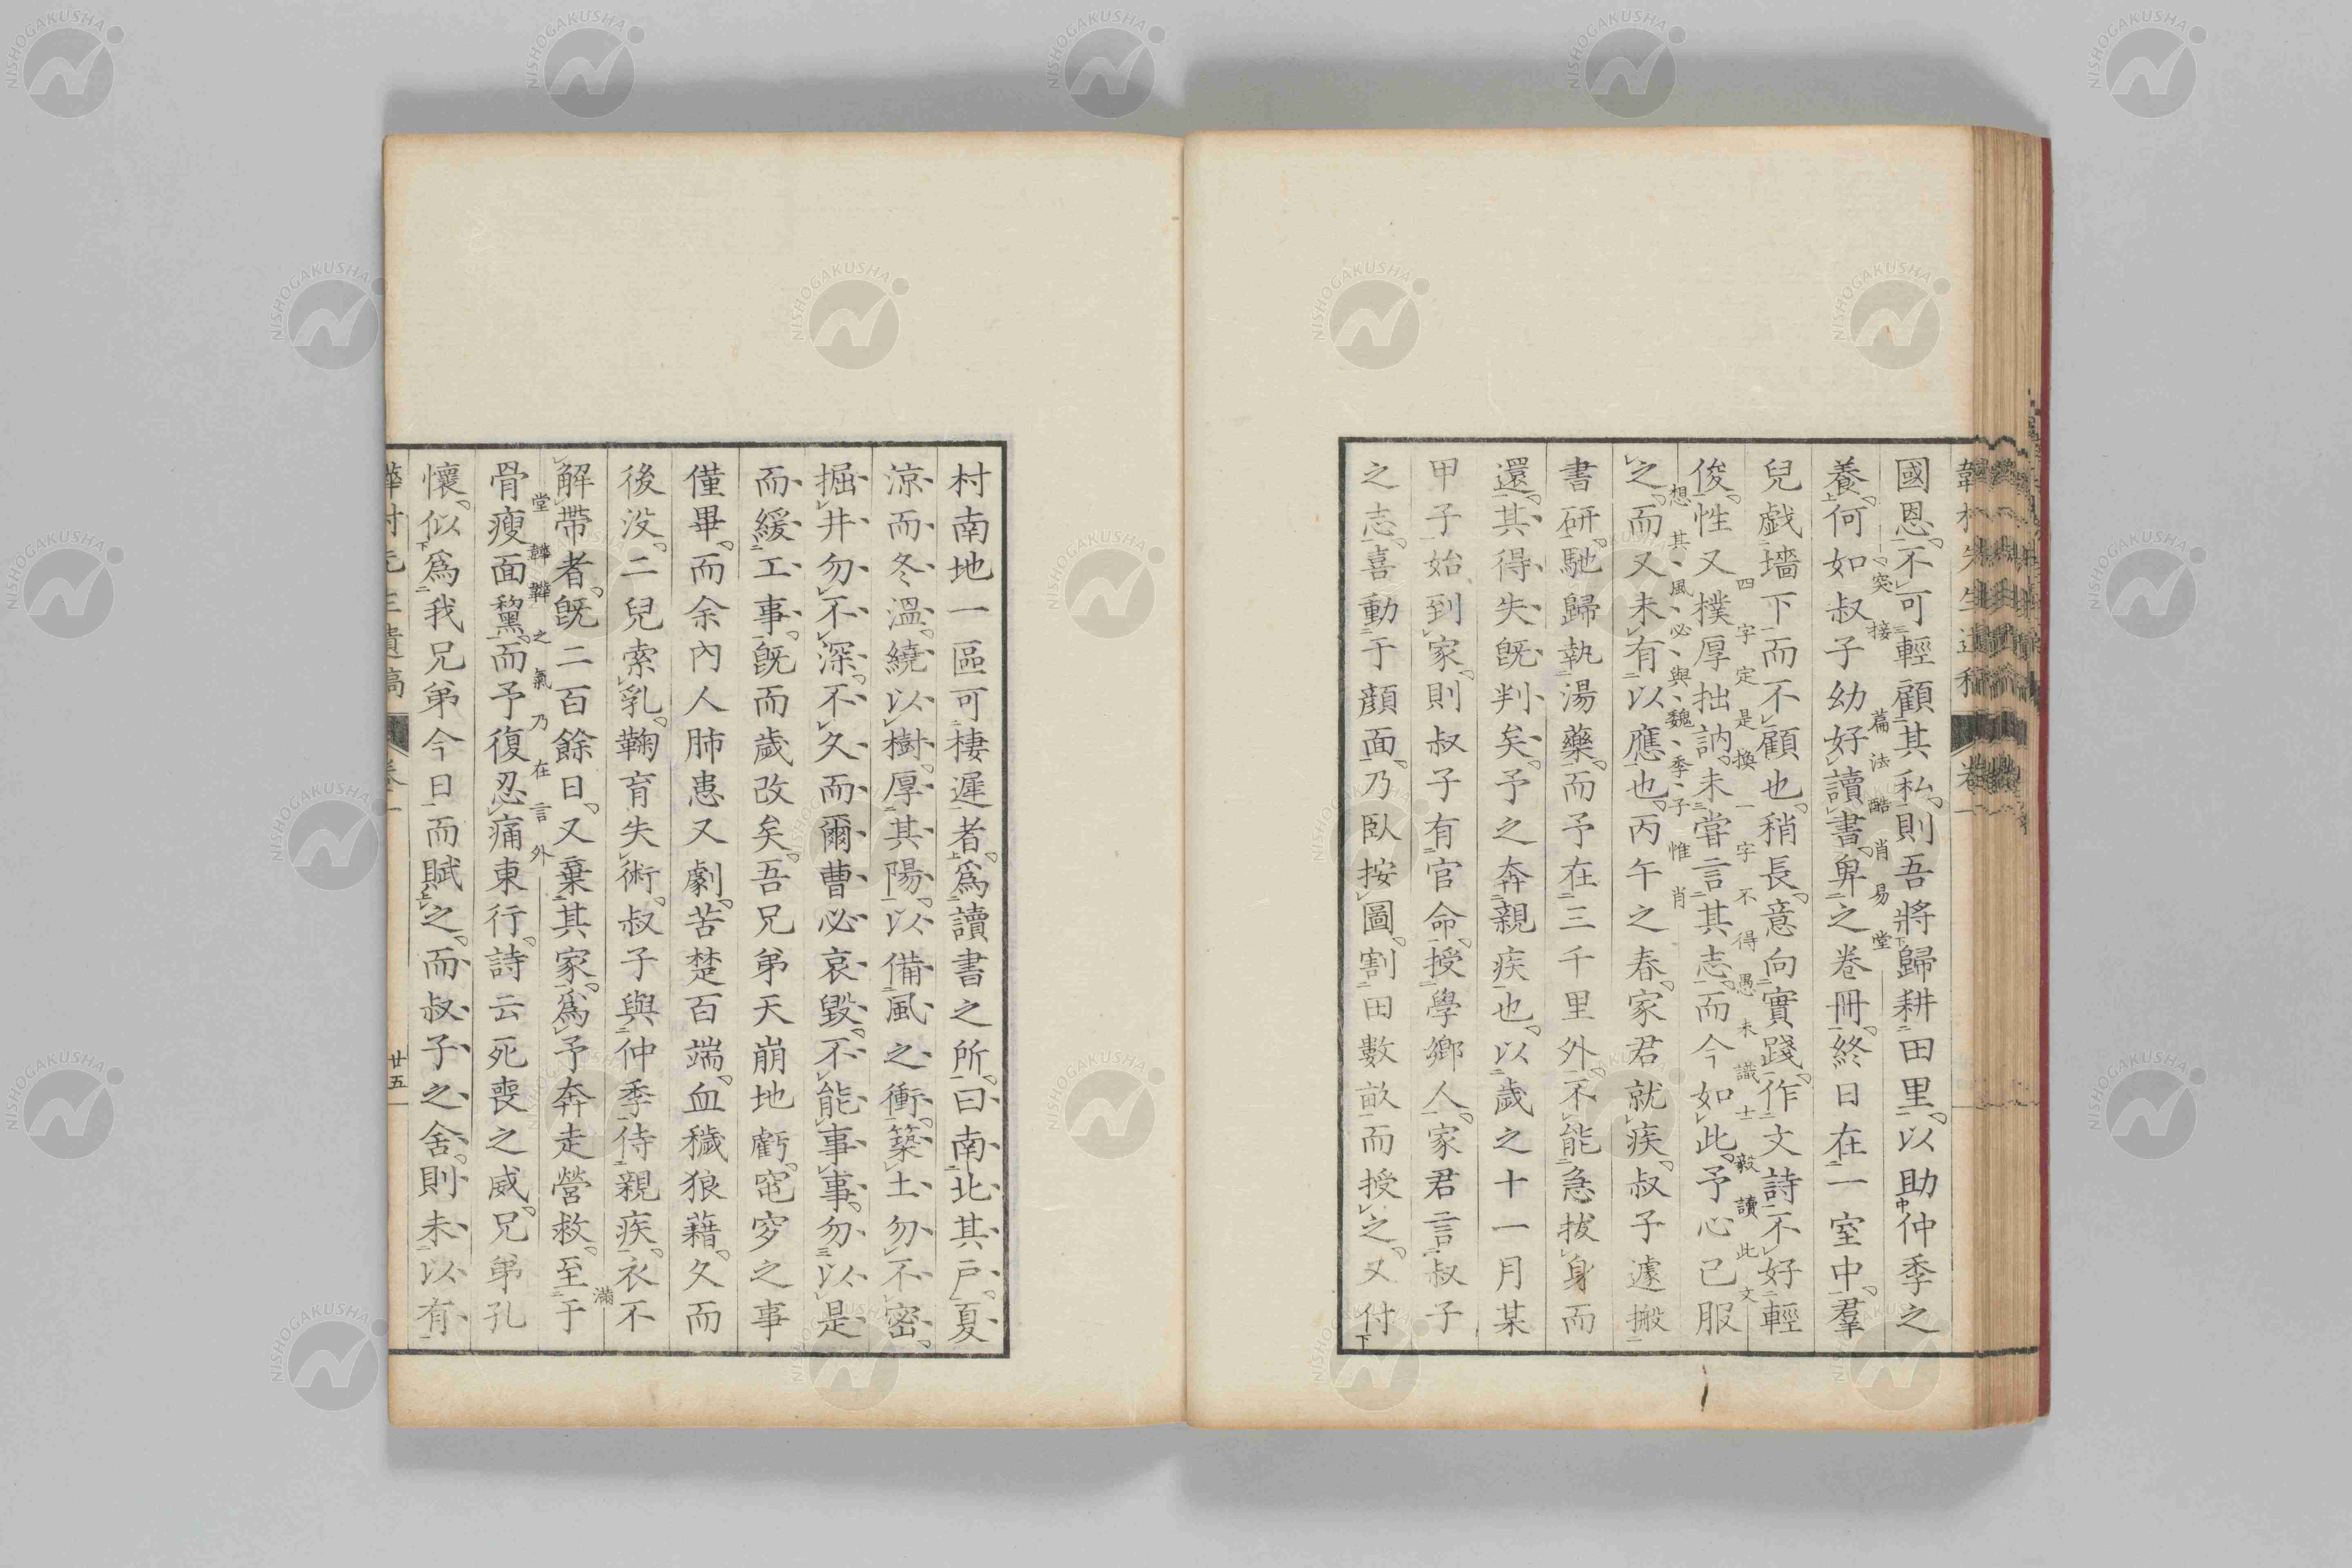 國恩不可輕顧其私則吾將歸耕田里以助仲季之
養何如叔子幼好讀書卑之卷冊終日在一室中羣
突接篇法酷肖易堂
兒戯墻下而不顧也稍長意向實踐作文詩不好輕
俊性又樸厚拙訥未甞言其志而今如此予心已服
四字定是換一字不得愚未識士毅讀此文
想其風必與魏季子惟肖
之而又未有以應也丙午之春家君就疾叔子遽搬
書研馳歸執湯藥而予在三千里外不能急拔身而
還其得失既判矣予之奔親疾也以歲之十一月某
甲子始到家則叔子有官命授學鄉人家君言叔子
之志喜動于顏面乃臥按圖割田數畝而授之又付
村南地一區可棲遲者爲讀書之所曰南北其戸夏
涼而冬溫繞以樹厚其陽以備風之衝築土勿不密
掘井勿不深不久而爾曹必哀毀不能事事勿以是
而緩工事既而歲改矣吾兄弟天崩地虧窀穸之事
僅畢而余內人肺患又劇苦楚百端血穢狼藉久而
後没二兒索乳鞠育失術叔子與仲季侍親疾衣不
解帶者既二百餘日又棄其家爲予奔走營救至于
滿堂韡韡之氣乃在言外
骨瘦面黧而予復忍痛東行詩云死喪之威兄弟孔
懷似爲我兄弟今日而賦之而叔子之舍則未以有
卷一
廿五
NISHOGAKUSHA